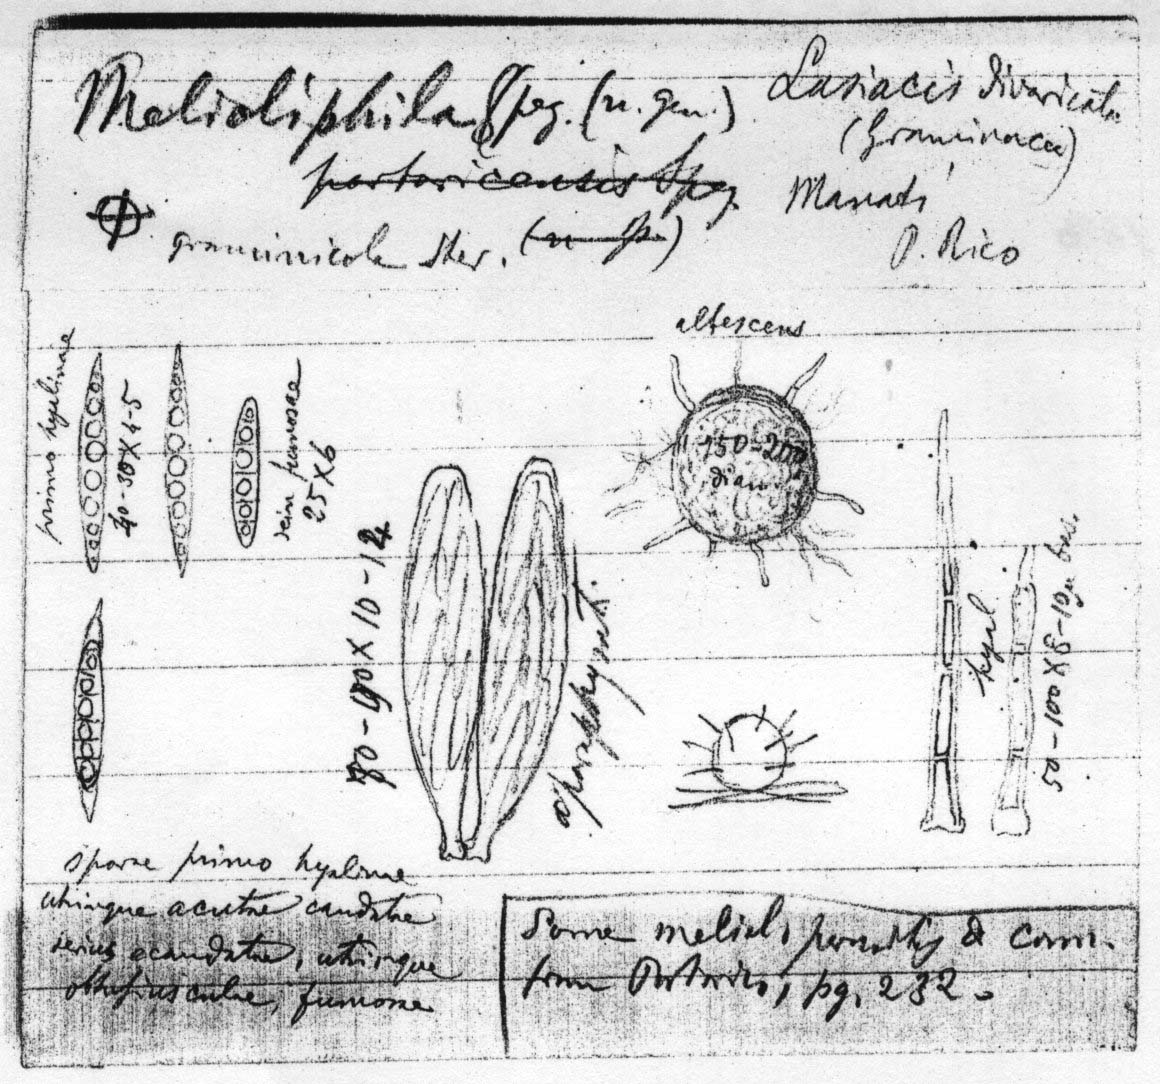 Melioliphila Speg. (n. gen.)
portoricensis Speg.
graminicola Ster. (n. sp.)
Lasiacis divaricata
(Graminacea)
Manati
P. Rico
albescens
primo hyalinae
40-30 X 4-5
sein fumosae
25 X 6
150-200
diam.
80-90 X 10-12
aparaphysat.
hyal
50-100 X 8-10µ bas.
sporae primo hyalinae
utrinque acutae caudatae
serius ecaudatae, utrinque
obtusiusculae, fumosae
Some meliol. parasitic & com.
from Portorico, pg. 232.